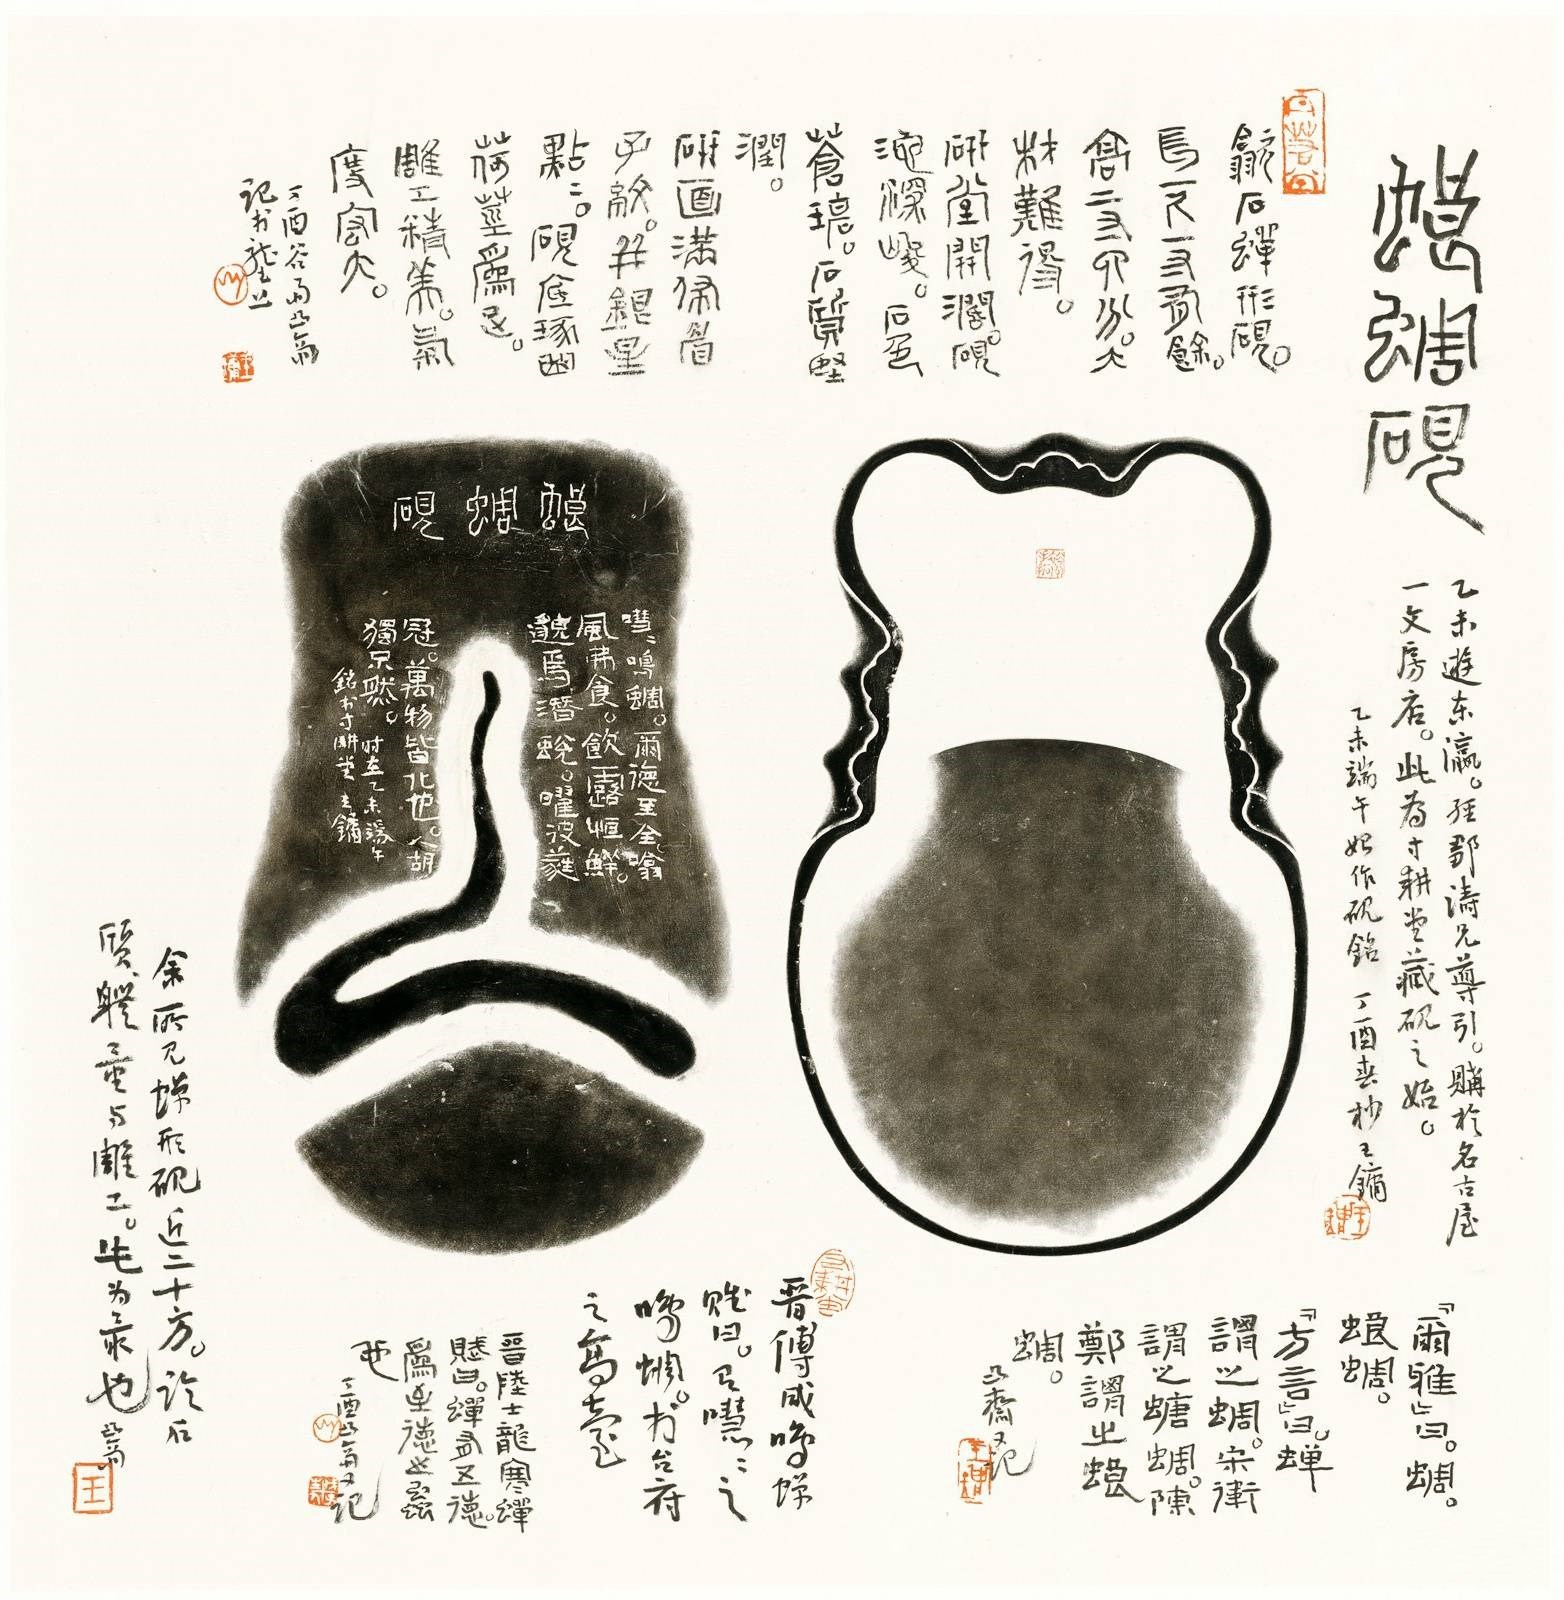 蜋蜩硯
乙未遊东瀛。經鄒濤兄導引。購於名古屋
一文房店。此為寸耕堂藏硯之始。
乙未端午始作硯銘 丁酉春杪王鏞
歙石蟬形硯。
長一尺一寸有餘。
高二寸六分。大
材難得。
硏堂開濶。硯
池深峻。石色
蒼璁。石質堅
潤。
硏面滿佈眉
子紋。并銀星
點點。硯底琢幽
荷莖為足。
雕工精美。氣
度宏大。
丁酉谷雨凸斎
記於龙上
蜋蜩硯
嘒嘒鳴蜩。爾德至全。噏
風弗食。飲露恒鮮。
邈焉潛蛻。曜波蕤
冠。萬物皆化也。人胡
獨不然。時在乙未端午
銘於寸耕堂 王鏞
『爾雅』曰。蜩。
蜋蜩。
『方言』曰。蟬
謂之蜩。宋衛
謂之螗蜩。陳
鄭謂之蜋
蜩。
凸齋又記
晋傅咸鳴蝉
賦曰。有嘒嘒之
鳴蜩。於台府
之高臺
晉陸士龍寒蟬
賦曰。蟬有五德。
為至德之蟲
也
丁酉凸斎又記
余所見蝉形硯近二十方。论石
質、體量与雕工。此为最也 凸斎
王